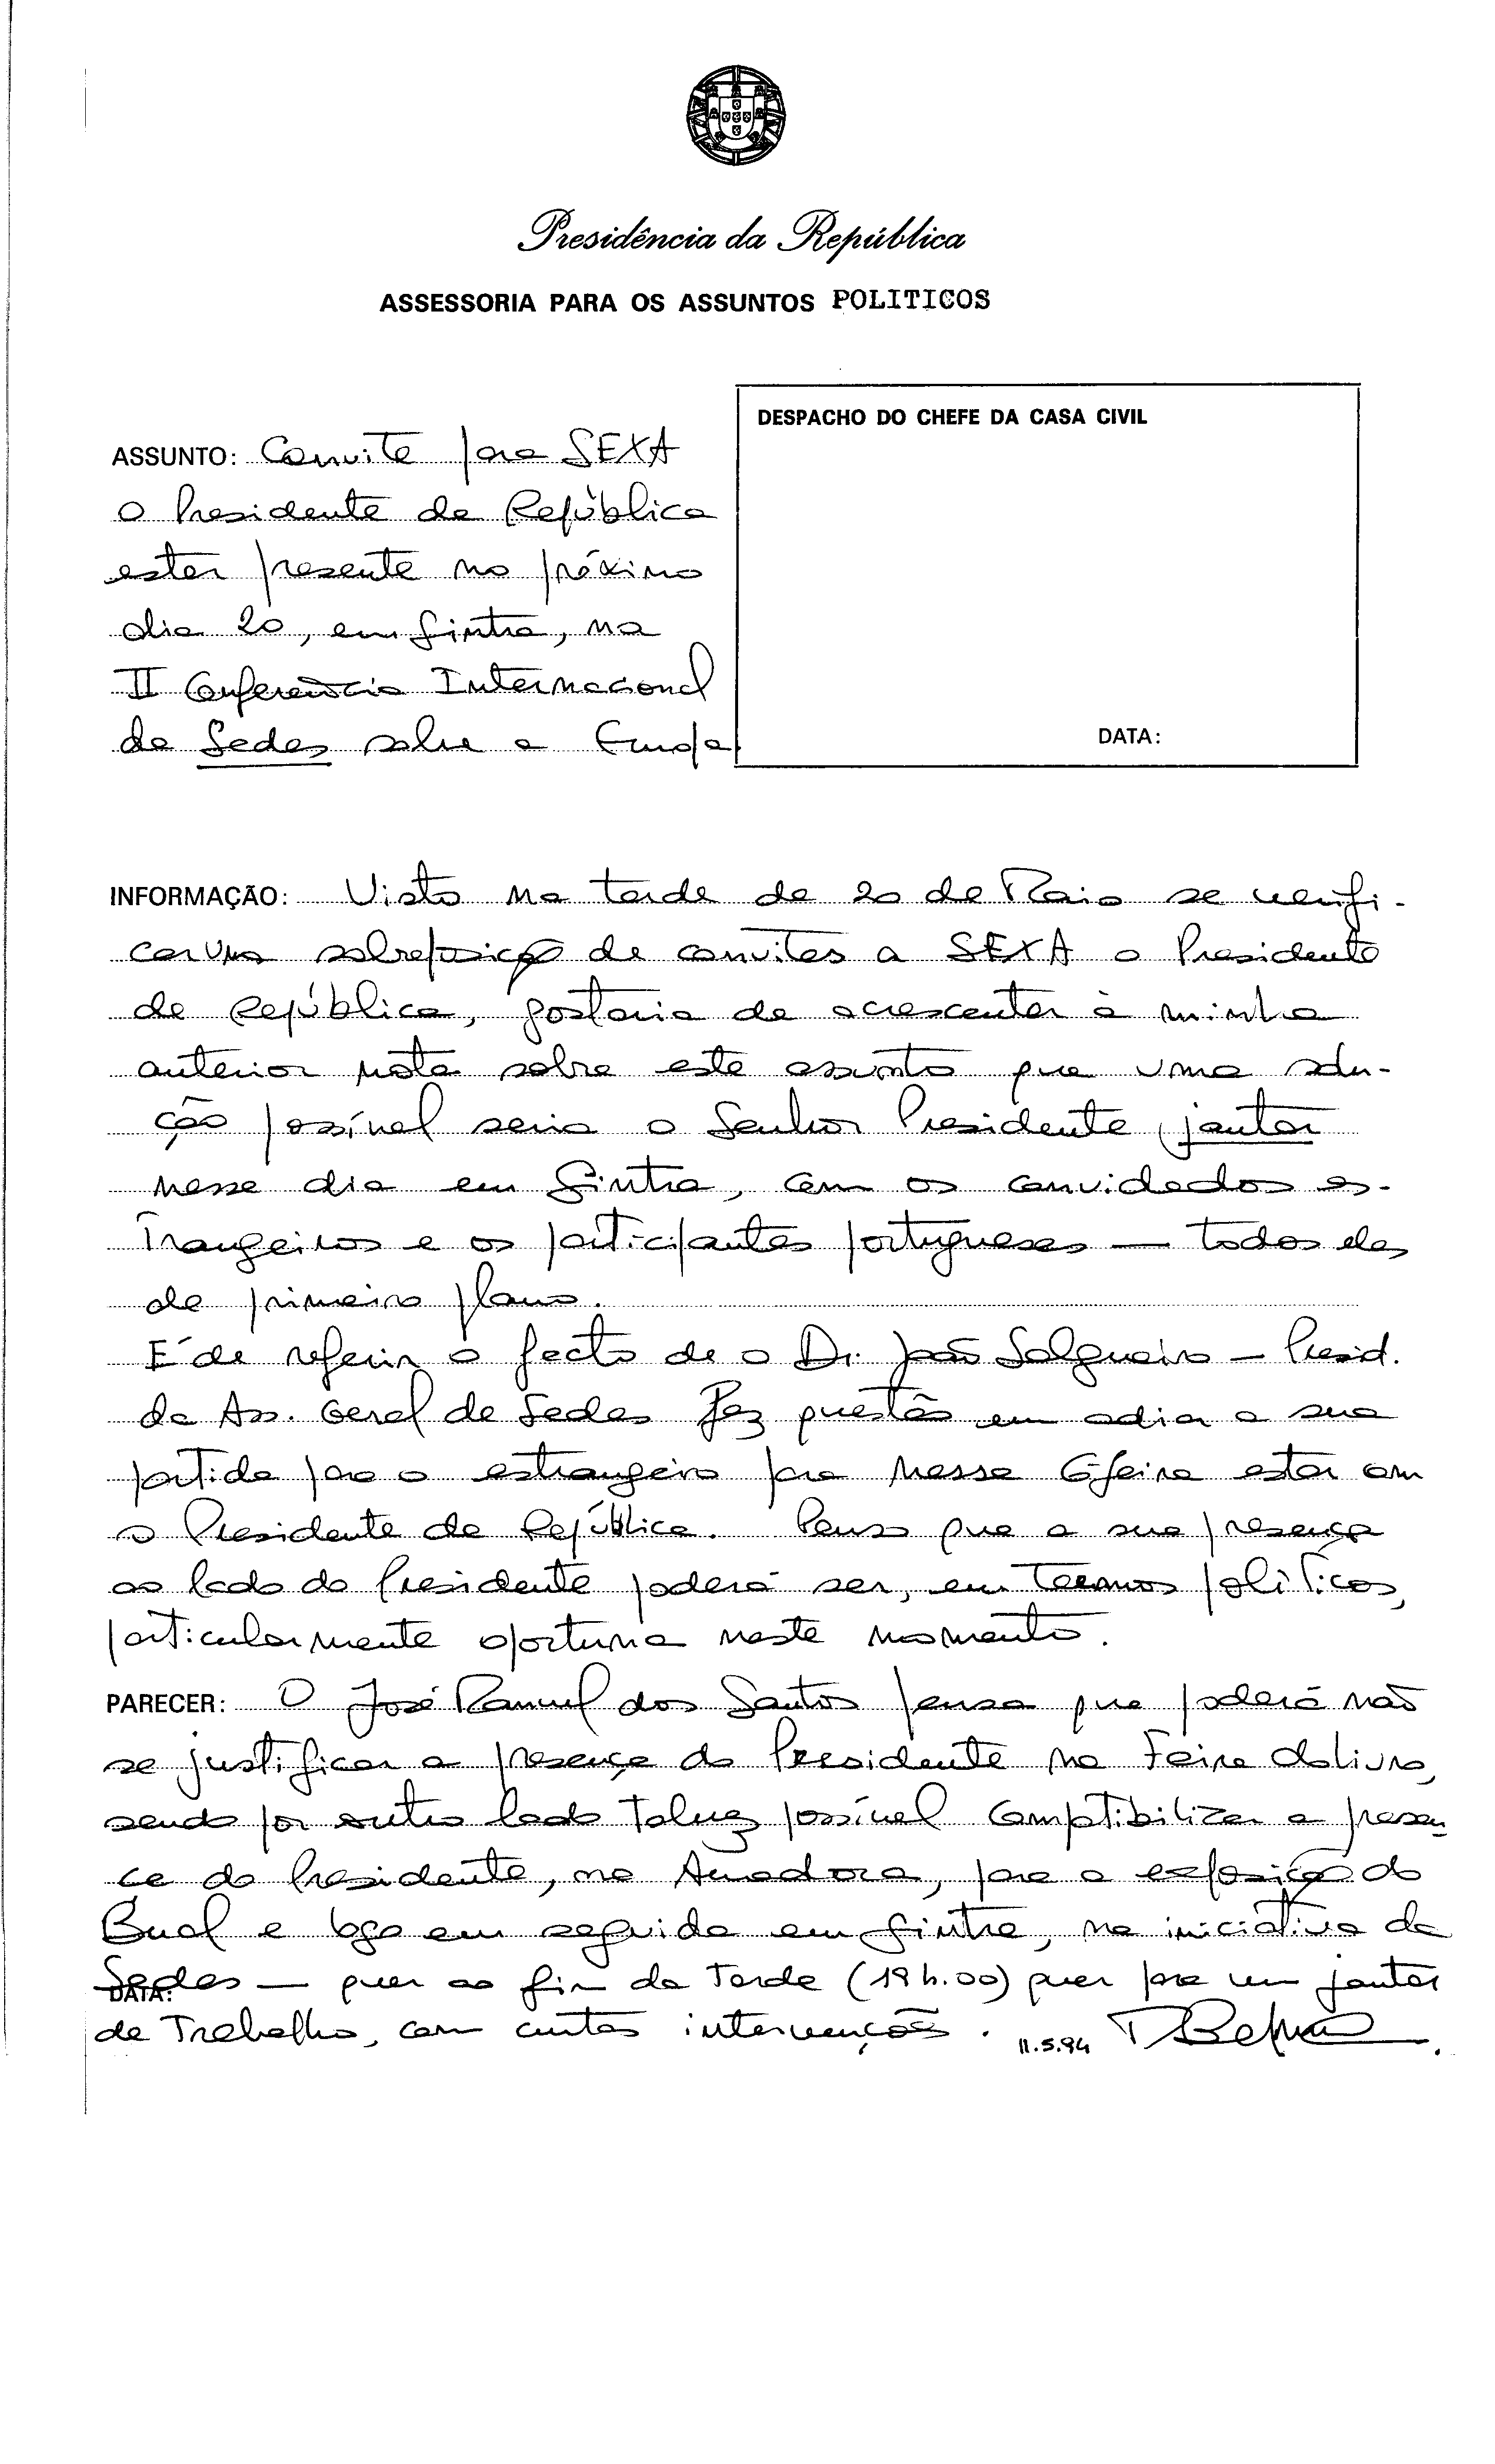 Presidência da República
ASSESSORIA PARA OS ASSUNTOS POLITICOS
DESPACHO DO CHEFE DA CASA CIVIL
ASSUNTO: Convite para SEXA
o Presidente da República
estar presente no próximo
dia 20, em Sintra, na
II Conferência Internacional
da Sedes sobre a Europa
DATA:
INFORMAÇÃO: Visto na tarde de 20 de Maio se verifi-
car uma sobreposição de convites a SEXA o Presidente
da República, gostaria de acrescentar à minha
anterior nota sobre este assunto que uma solu-
ção possível seria o Senhor Presidente jantar
nesse dia em Sintra, com os convidados es-
trangeiros e os participantes portugueses — todos eles
de primeiro plano.
É de referir o facto de o Dr. João Salgueiro — Presid.
da Ass. Geral da Sedes fez questão em adiar a sua
partida para o estrangeiro para nessa 6ª feira estar com
o Presidente da República. Penso que a sua presença
ao lado do Presidente poderá ser, em termos políticos,
particularmente oportuna neste momento.
PARECER: O José Manuel dos Santos pensa que poderá não
se justificar a presença do Presidente na Feira do Livro,
sendo por outro lado talvez possível compatibilizar a presen
ça do Presidente, na Amadora, para a exposição do
Bual e logo em seguida em Sintra, na iniciativa da
Sedes — quer ao fim da tarde (19h.00) quer para um jantar
DATA:
de Trabalho, com curtas intervenções. 11.5.94